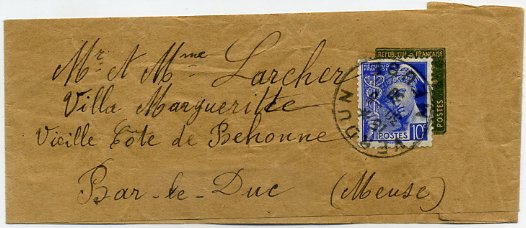 Mr. et Mme Larcher
Villa Margueritte
Vieille Côte de Behonne
Bar-le-Duc (Meuse)
REPUBLIQUE FRANÇAISE
POSTES 10c
POSTES
VERDUN